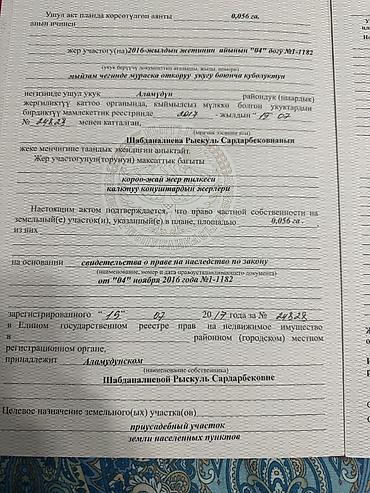 Ушул акт планда көрсөтүлгөн аянты 0,056 га.
анын ичинен
жер участогу(на) 2016-жылдын жетинин айынын "04" дөгү №1-1182
(укук берүүчү документтин аталышы, жылы, номери)
мыйзам чегинде мураска өткөрүү укугу боюнча күбөлүктүн
негизинде ушул укук Аламүдүн райондук (шаардык)
жергиликтүү каттоо органында, кыймылсыз мүлккө болгон укуктардын
бирдиктүү мамлекеттик реестринде 2017 - жылдын " 15 07
№ 24828 менен катталган,
(менчик ээсинин аты)
Шабданалиева Рыскуль Сардарбековнанын
жеке менчигине таандык экендигин аныктайт.
Жер участогунун(торунун) максаттык багыты
короо-жай жер тилкеси
калктуу конуштардын жерлери
Настоящим актом подтверждается, что право частной собственности на
земельный(е) участок(и), указанный(е) в плане, площадью 0,056 га -
из них
на основании свидетельства о праве на наследство по закону
(наименование, номер и дата правоустанавливающего документа)
от "04" ноября 2016 года №1-1182
зарегистрированного " 15" 07 2017 года за № 24828
в Едином государственном реестре прав на недвижимое имущество
в районном (городском) местном
регистрационном органе,
принадлежит Аламудунском
(наименование собственника)
Шабданалиевой Рыскуль Сардарбековне
Целевое назначение земельного(ых) участка(ов)
приусадебный участок
земли населенных пунктов